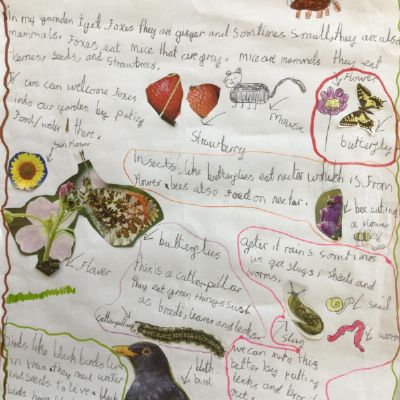 In my garden I get Foxes they are ginger and Sometimes Small, they are also
mammals. Foxes eat mice that are grey. Mice are mammals they eat
berries, seeds, and strawbrees.
we can welcome foxes
into our garden by puting
Food/water there.
Strawberry
Mouse
Flower
butterfley
Sun Flower
Insects like butterflies eat nectar which is From
Flower. bees also Feed on nectar.
bee eating
a Flower
butterflies
Flower
this is a catterpillar
they eat green things such
as brode, leaves and leeks.
catterpillar
after it rains sometimes
we get slugs snails and
worms.
Snail
Slug
worm
birds like black birds live
in trees. They need water
and seeds to live. black
birds have
black
bird
we can make this
better by putting
leeks and
out